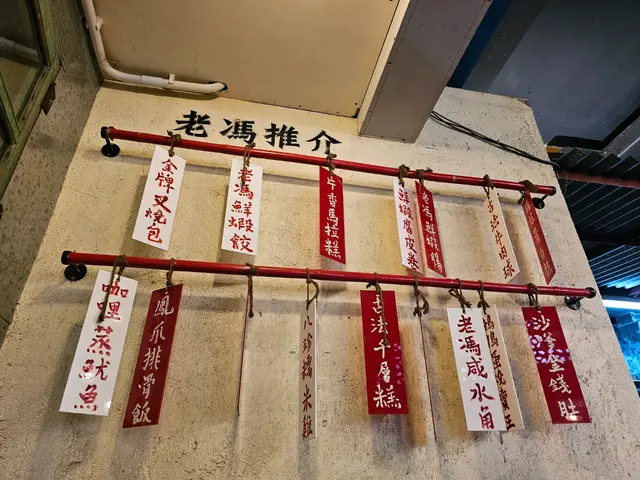 老馮推介
金牌叉燒包
老馮鮮蝦餃
古香馬拉糕
鮮蝦腐皮卷
老馮鮮蝦腸
牛肉球
咖喱蒸魷魚
鳳爪排骨飯
八珍糯米雞
古法千層糕
老馮咸水角
沙爹金錢肚